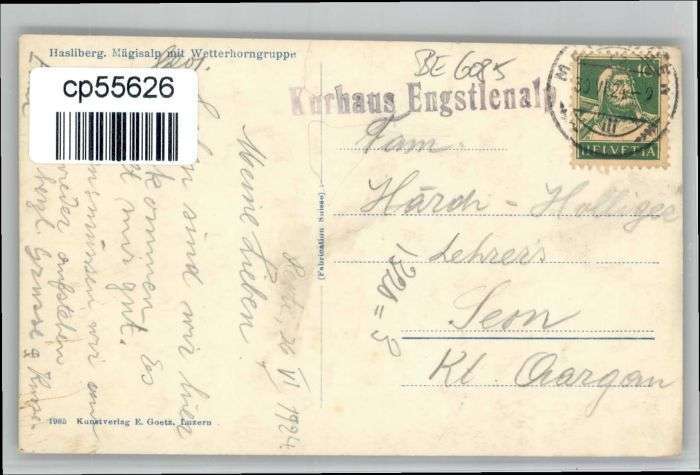 Hasliberg. Mägisalp mit Wetterhorngruppe
cp55626
BE 6085
Kurhaus Engstlenalp
HELVETIA
Fam.
Härdi - Holliger
Lehrers
Seon
Kt. Aargau
(Fabrication Suisse)
26 VI 1924
Meine Lieben
sind wir hier
kommen. Es
mir gut.
wir am
wieder aufstehen
herzl. Grüsse
1985 Kunstverlag E. Goetz, Luzern